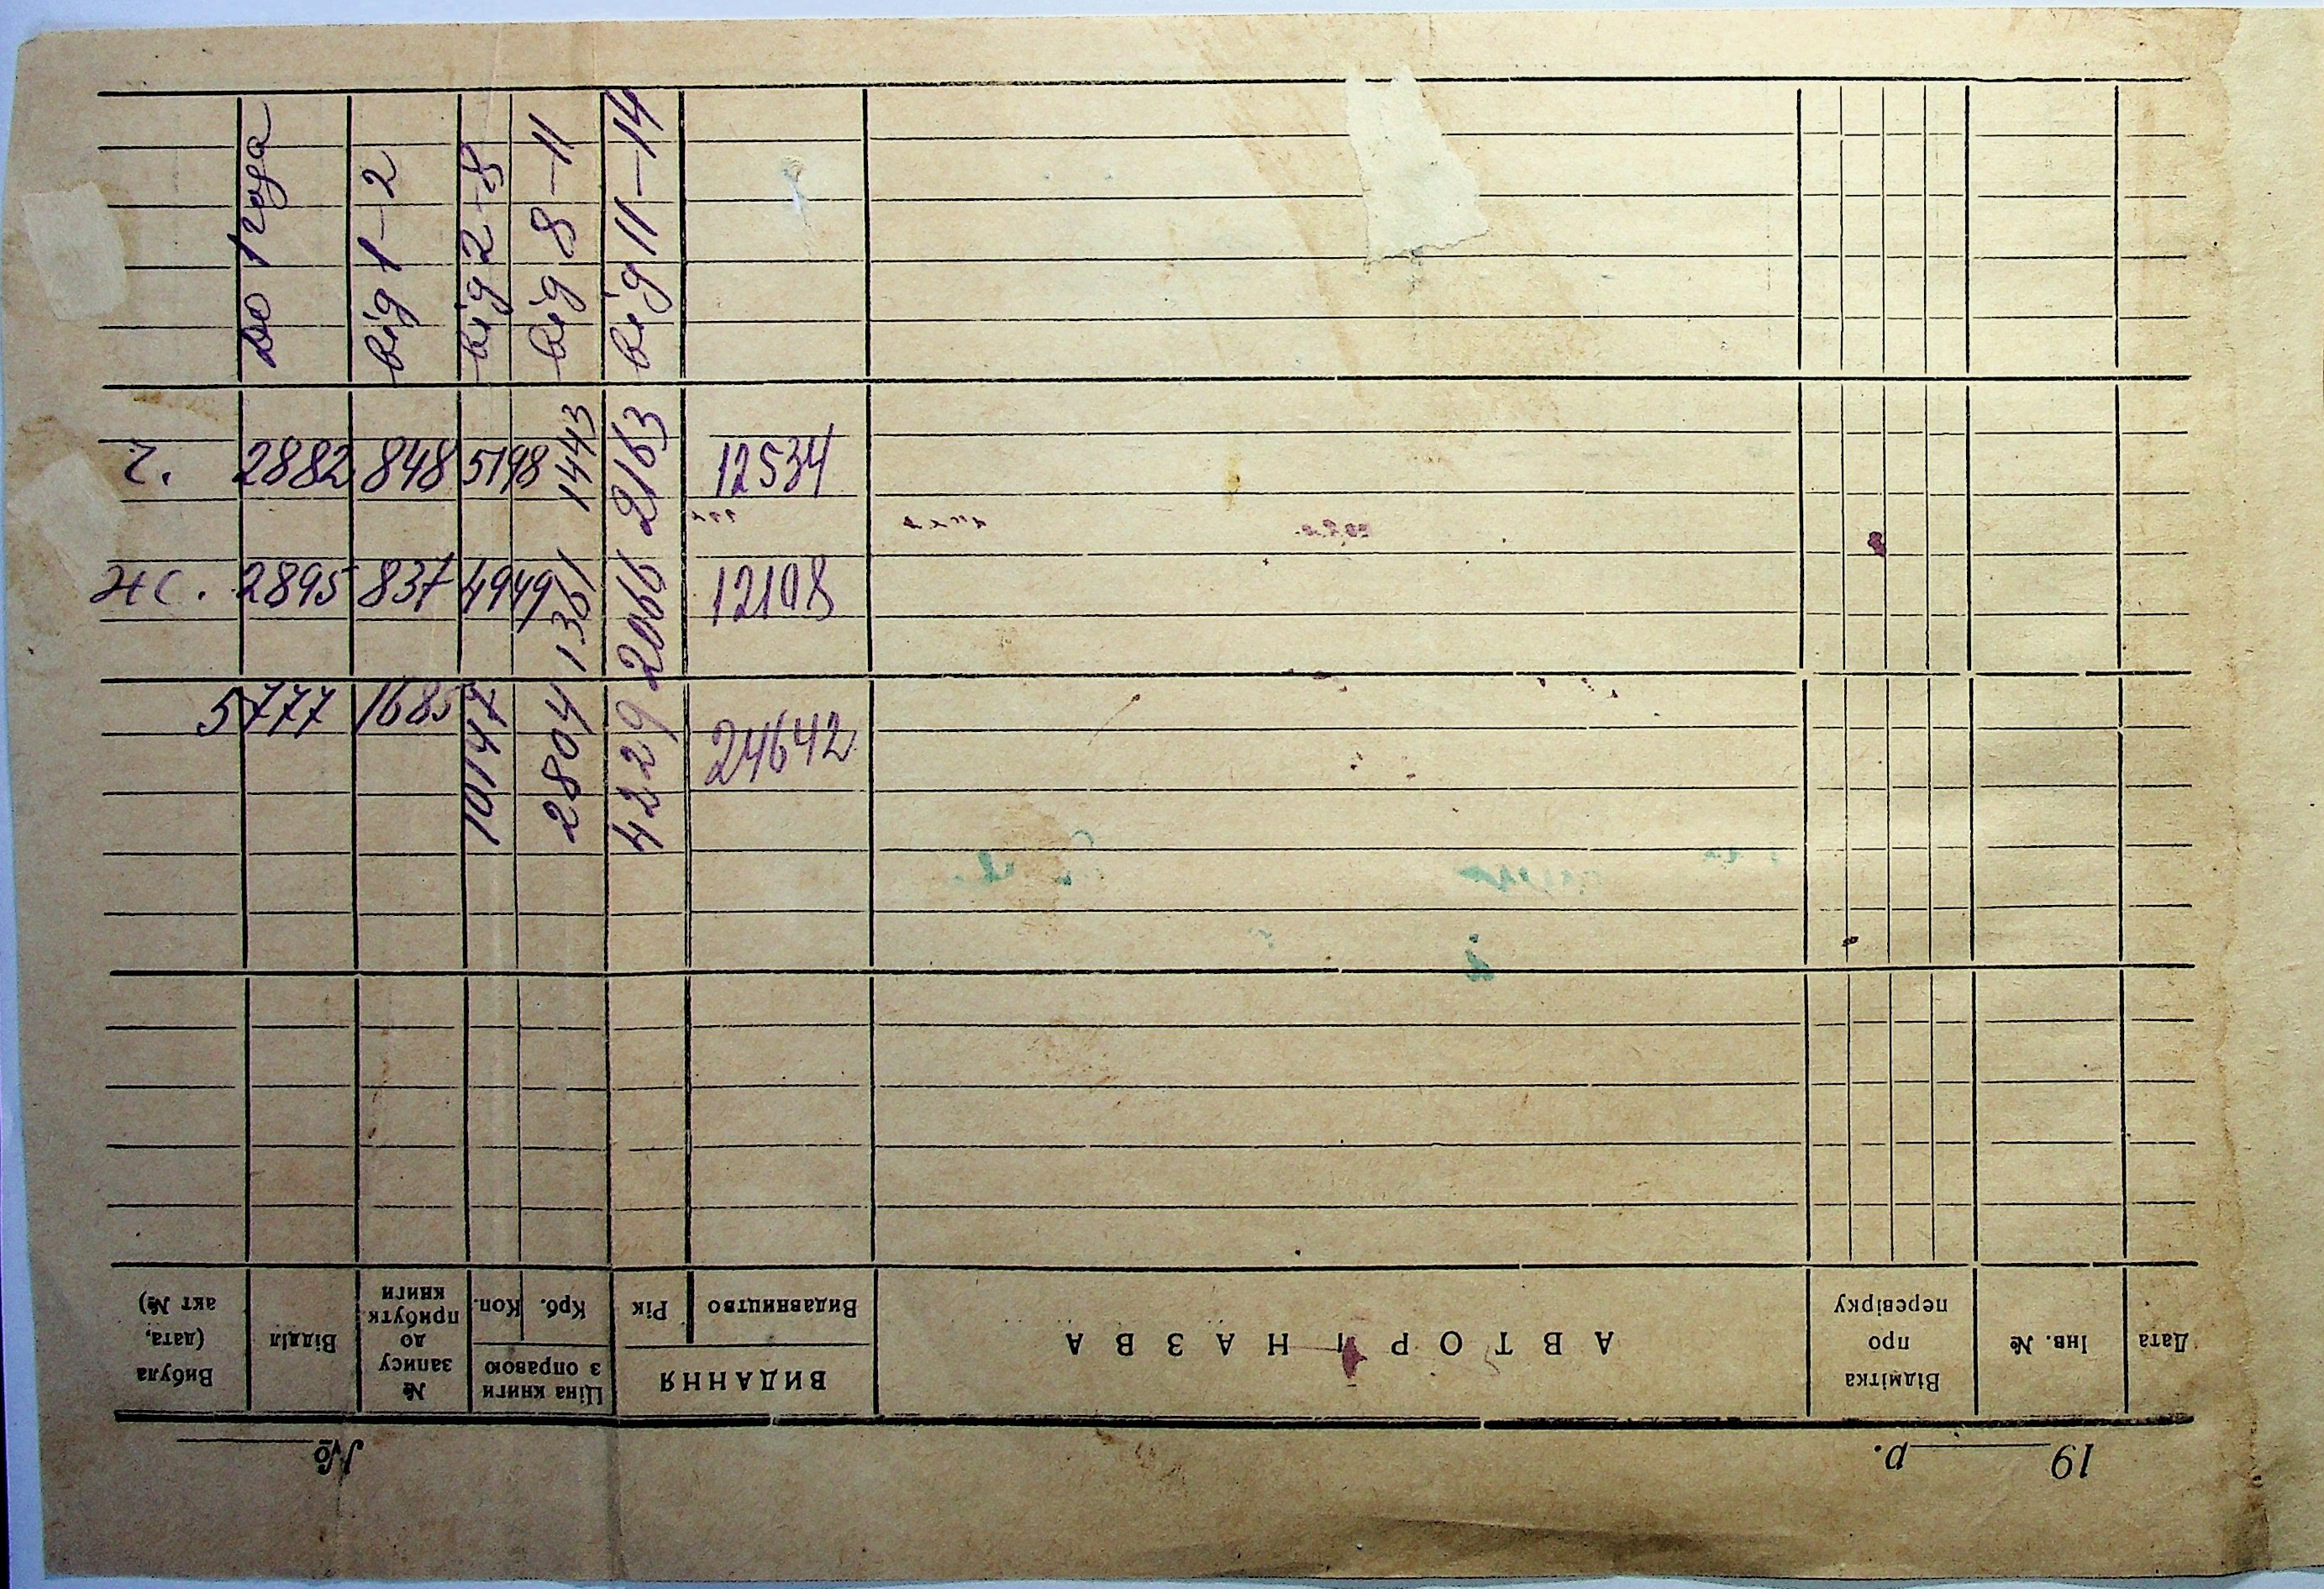 до 1 года від 1–2 від 2–8 від 8–11 від 11–14
ч. 2882 848 5198 1443 2163 12534
ж. 2895 837 4949 1361 2066 12108
5777 1685 10147 2804 4229 24642
19 р. №
Дата
Інв. №
Відмітка
про
перевірку
АВТОР І НАЗВА
ВИДАННЯ
Видавництво
Рік
Ціна книги
з оправою
Крб.
Коп.
№
запису
до
прибутк
книги
Відділ
Вибула
(дата,
акт №)